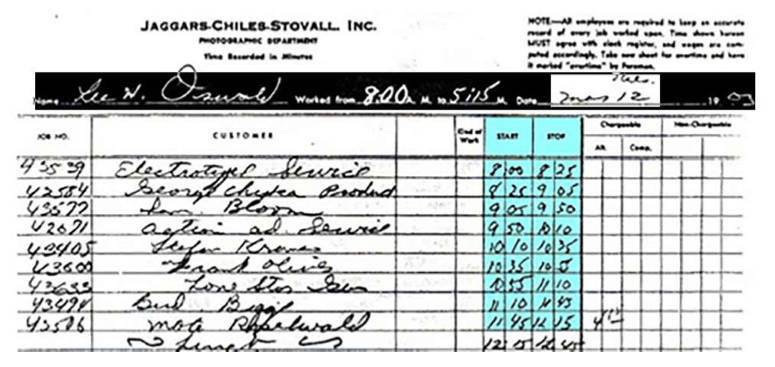 JAGGARS-CHILES-STOVALL, INC.
PHOTOGRAPHIC DEPARTMENT
Time Recorded in Minutes
NOTE—All employees are required to keep an accurate
record of every job worked upon. Time shown hereon
MUST agree with clock register, and wages are com-
puted accordingly. Take new sheet for overtime and have
it marked "overtime" by Foreman.
Tues.
Name Lee H. Oswald Worked from 8:00 A. M. to 5:15 M. Date Mar 12 19
JOB NO. CUSTOMER Kind of Work START STOP Chargeable Non-Chargeable
Alt. Comp.
43539 Electrotype Service 8 00 8 25
42584 George 8 25 9 05
43577 Sam Bloom 9 05 9 50
42071 Action Ad Service 9 50 10 10
43405 10 10 10 35
43600 10 35
43633 Lone Star 10 55 11 10
11 10 11 45
43506 11 45 12 15
Lunch 12 15 12 45